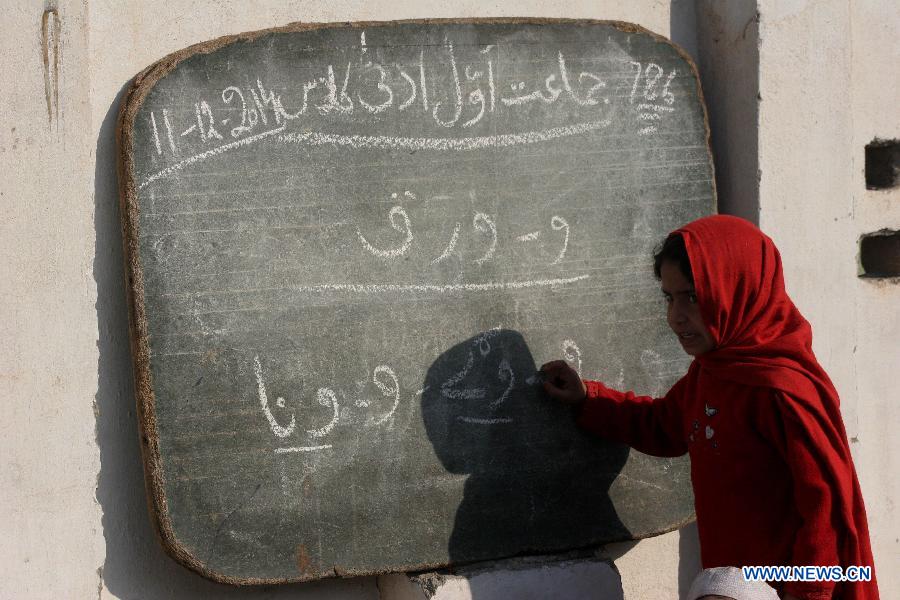 786 جماعت اوّل ادنیٰ کلاس 11-12-2014
و - ورق
و - وے - و - ونا
WWW.NEWS.CN